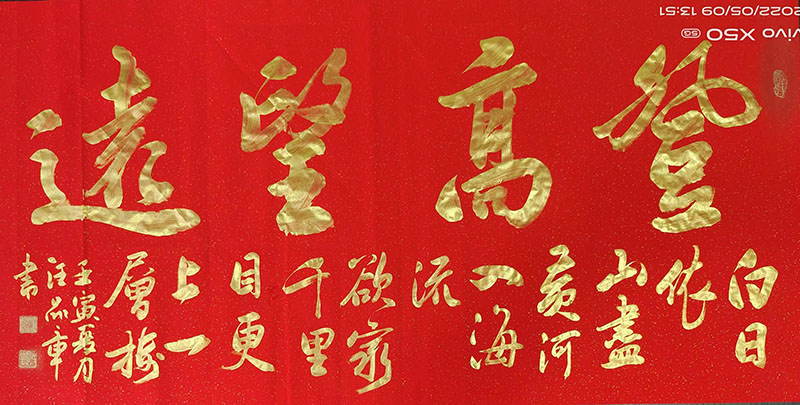 登高望遠
白日
依
山盡
黃河
入海
流
欲窮
千里
目更
上一
層樓
壬寅夏月
汪品章
書
vivo X50 5G
2022/05/09 13:51